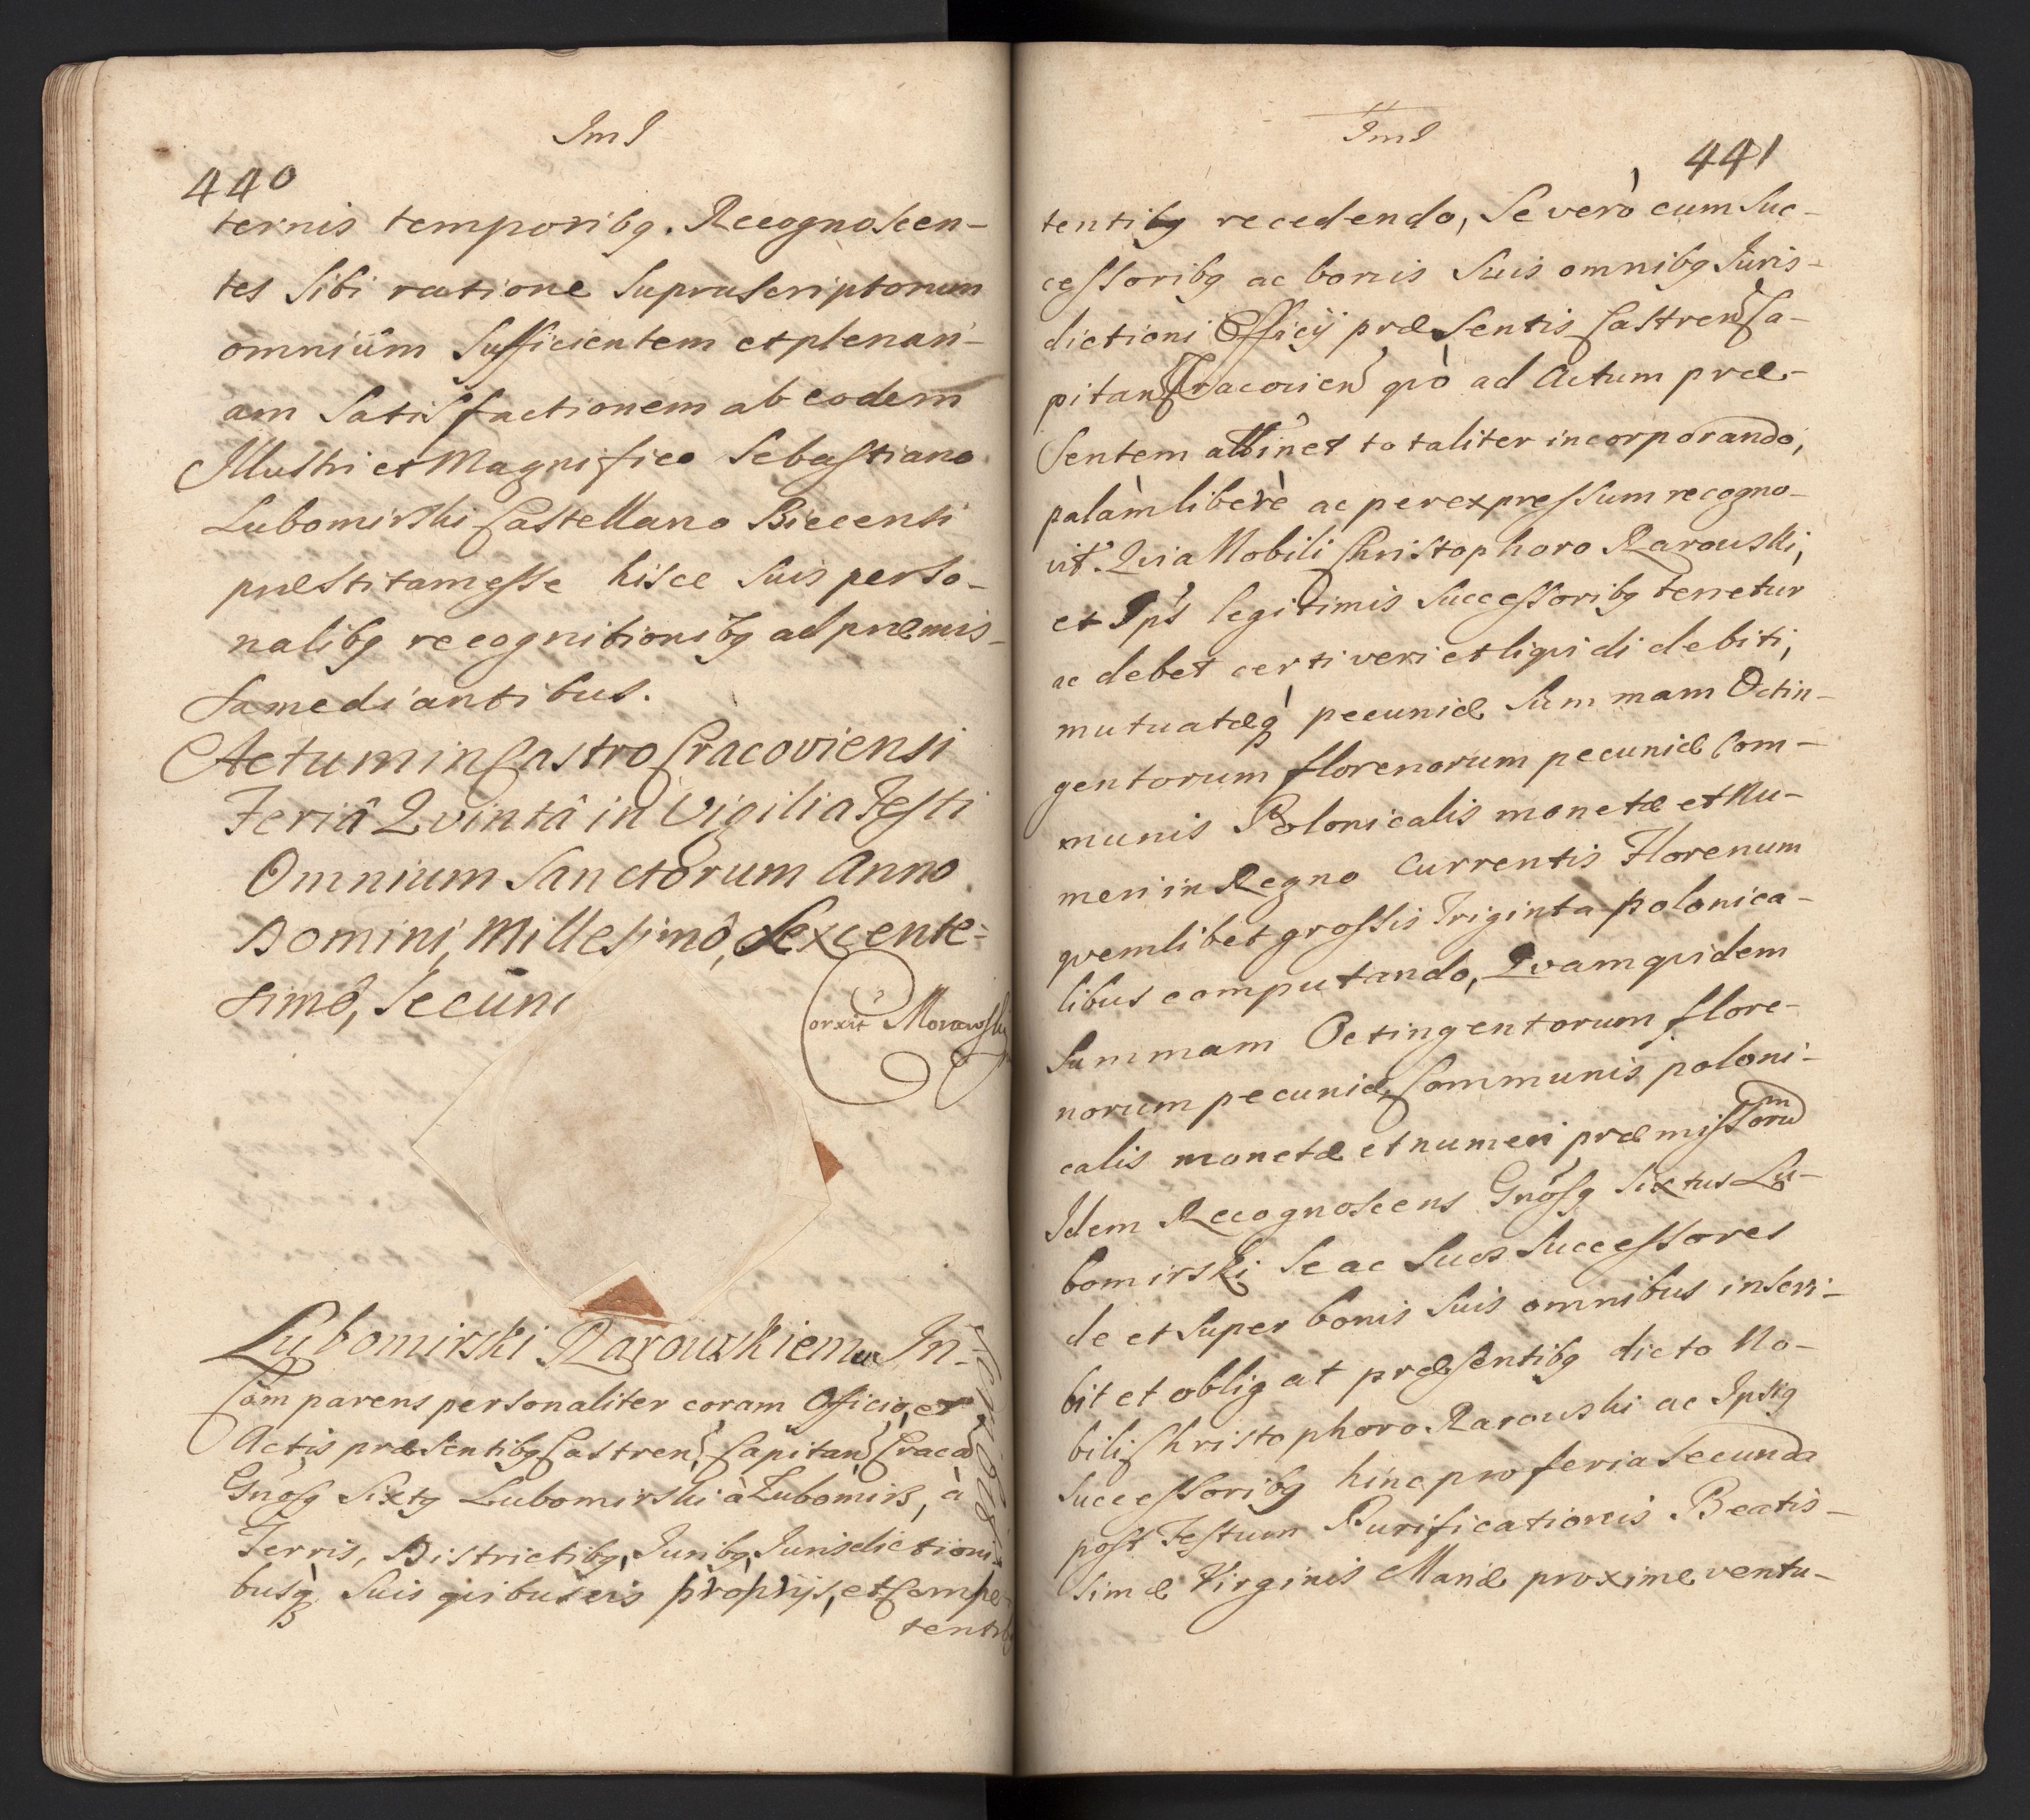 ImI
440
ternis temporibq. Recognoscen-
tes Sibi ratione Suprascriptorum
omnium Sufficientem et plenari-
am Satisfactionem ab eodem
Illustri et Magnifico Sebastiano
Lubomirski Castellano Biecensi
præstitam esse hisce Suis perso-
nalibq recognitionibq ad præmis-
sa mediantibus.
Actum in Castro Cracoviensi
Feriâ Quintâ in Vigilia Festi
Omnium Sanctorum Anno
Domini, Millesimô, Sexcente=
simô, Secun
Corxit Morawski
Lubomirski Rarowskiemu In-
scribit
Comparens personaliter coram Officio, et
Actis præsentibq Castren Capitan Cracov
Gnosq Sixtq Lubomirski à Lubomirz, à
Terris, Districtibq, Juribq, Jurisdictioni-
busq Suis quibusvis proprijs, et Compe-
tentibq
ImI
441
tentibq recedendo, Se verò cum Suc-
cessoribq ac bonis Suis omnibq Juris-
dictioni Officij præsentis Castren Ca-
pitan Cracovien quò ad Actum præ-
sentem attinet totaliter incorporando,
palàm liberè ac per expressum recogno-
vit. Quia Nobili Christophoro Rarowski,
et Ips legitimis Successoribq tenetur
ac debet certi veri et liquidi debiti,
mutuatæq pecuniæ Summam Octin-
gentorum florenorum pecuniæ Com-
munis Polonicalis monetæ et Nu-
meri in Regno Currentis Florenum
quemlibet grossis Triginta polonica-
libus computando, Quam quidem
Summam Octingentorum flore-
norum pecuniæ Communis poloni-
calis monetæ et numeri præmissorum
Idem Recognoscens Gnosq Sixtus Lu-
bomirski Se ac Suos Successores
de et Super bonis Suis omnibus inscri-
bit et obligat præsentibq dicto No-
bili Christophoro Rarowski ac Ipsiq
Successoribq hinc pro feria Secunda
post Festum Purificationis Beatis-
simæ Virginis Mariæ proxime ventu-